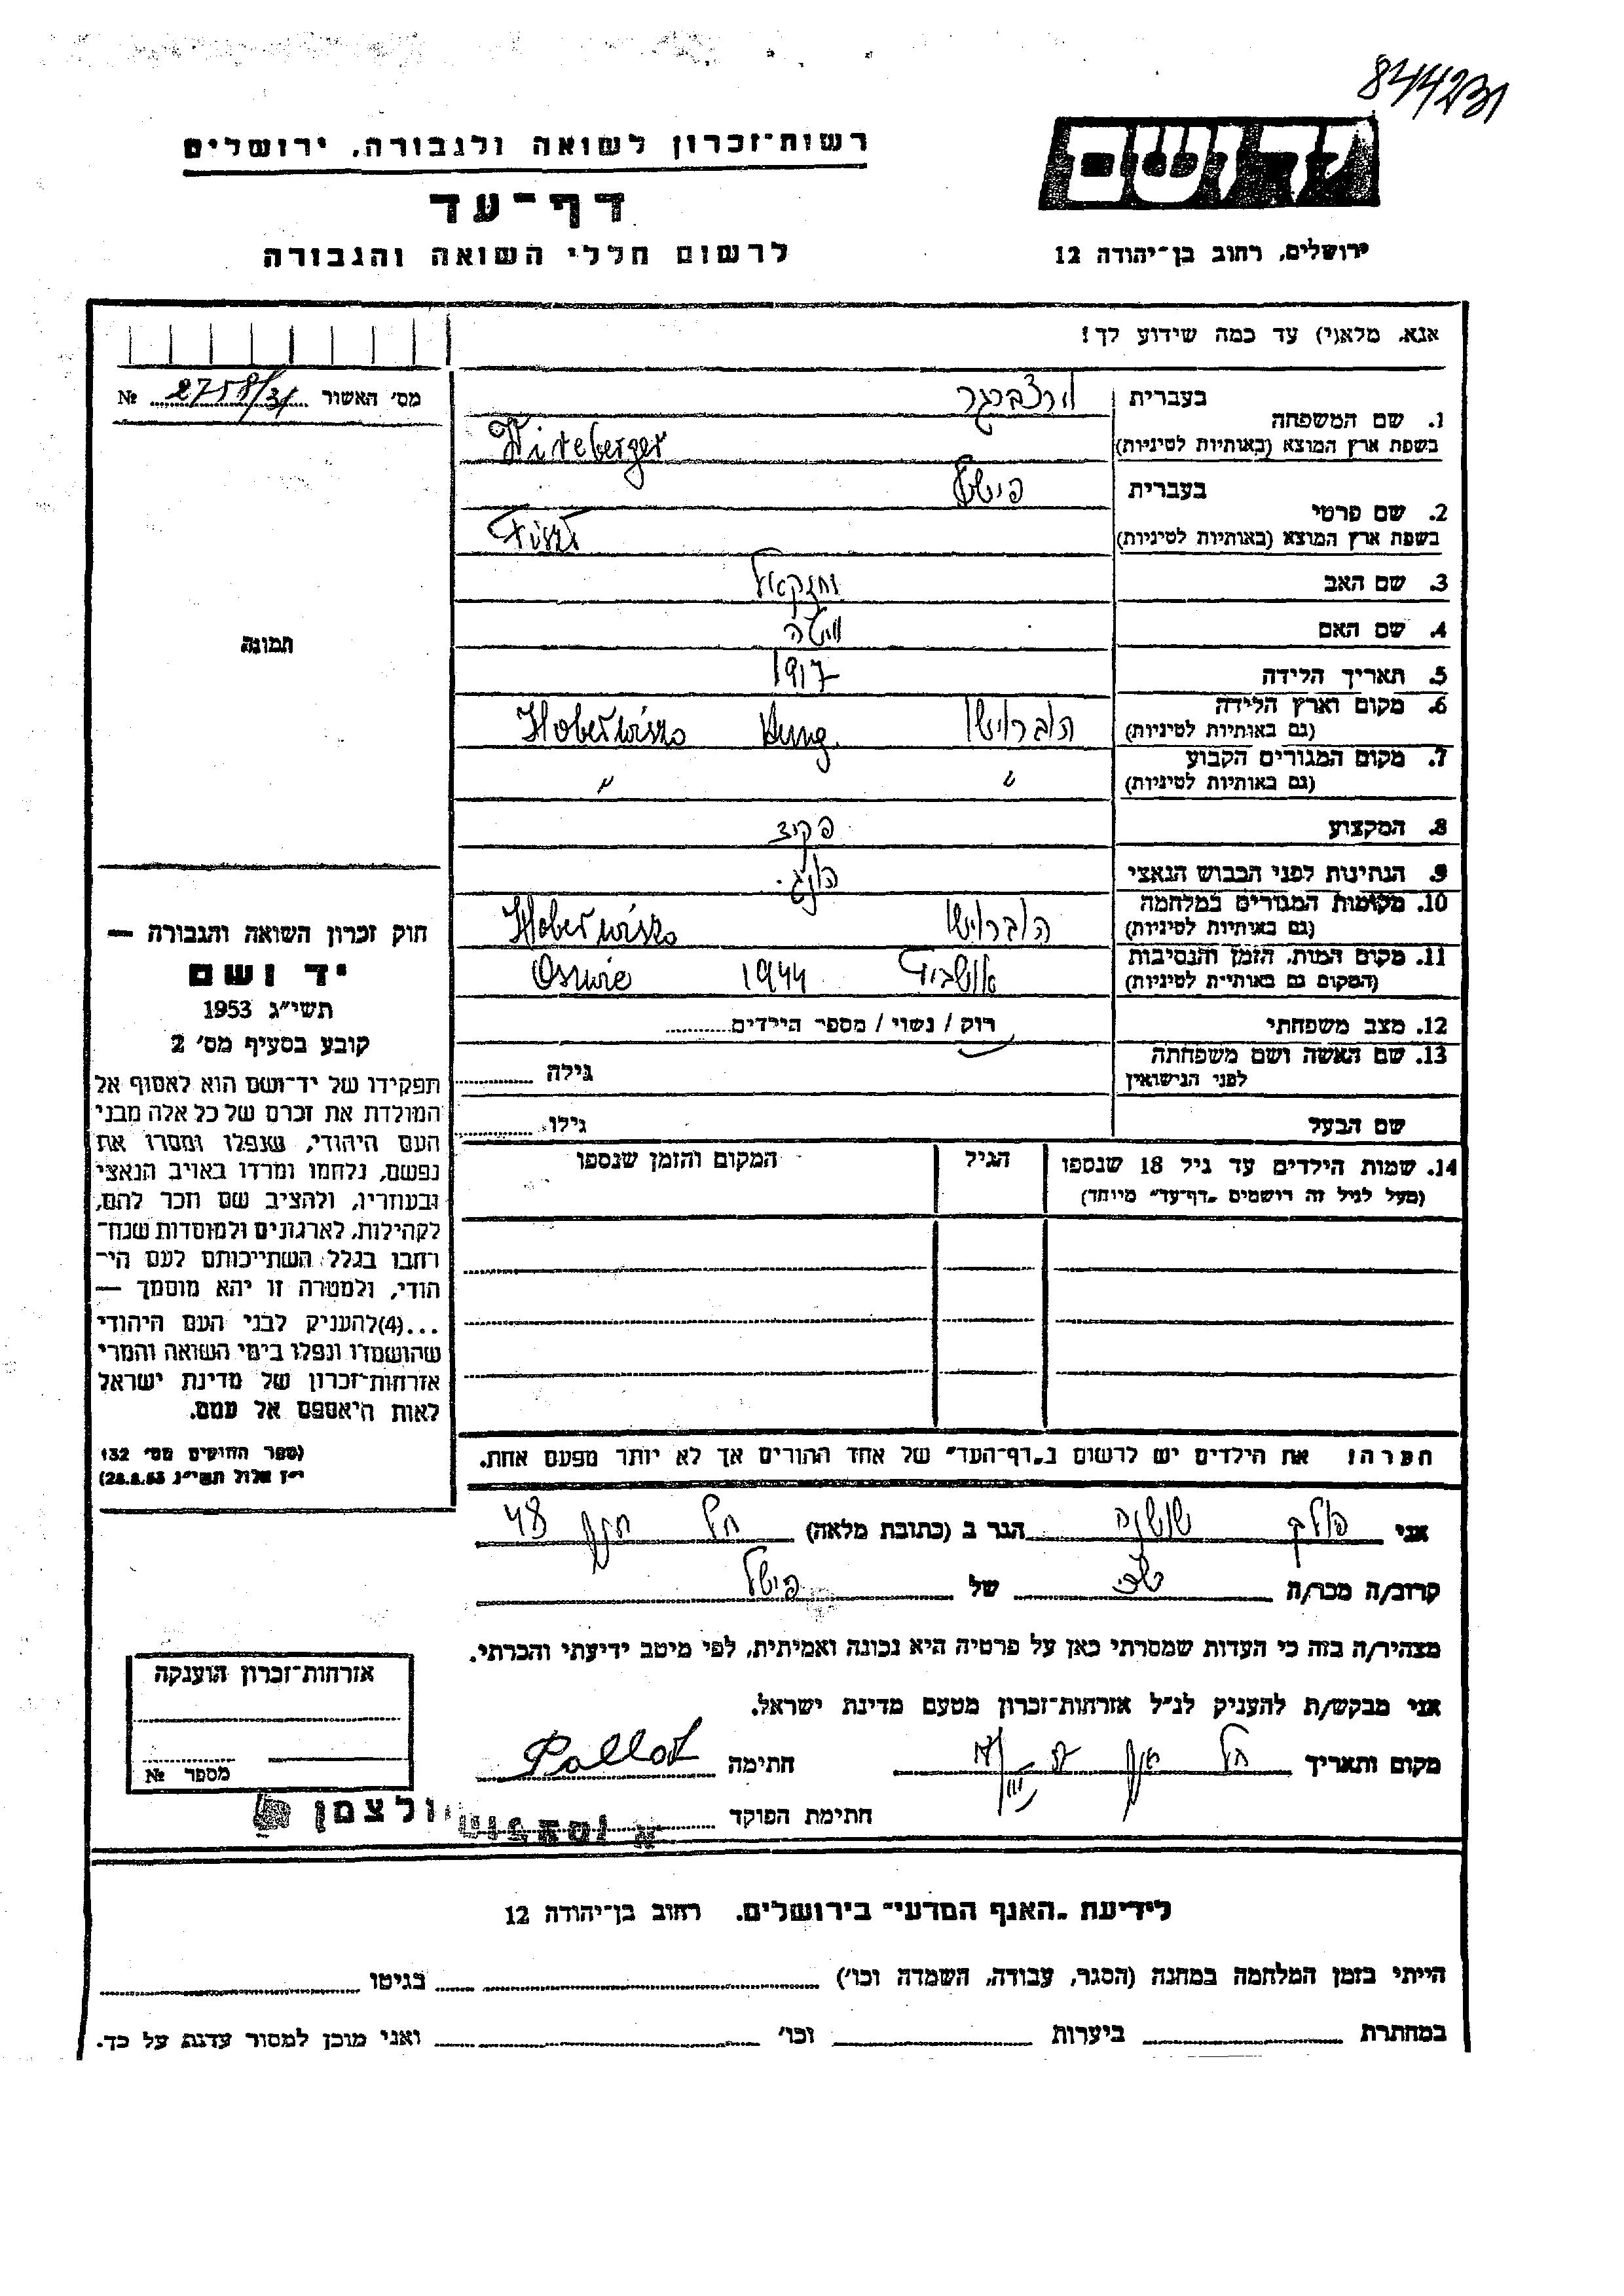 844231
רשות־זכרון לשואה ולגבורה, ירושלים
יד ושם
דף־עד
לרשום חללי השואה והגבורה
ירושלים, רחוב בן־יהודה 12
אנא, מלא(י) עד כמה שידוע לך!
מס׳ האשור 2758/31 №
1. שם המשפחה
בעברית וירצברגר
בשפת ארץ המוצא (באותיות לטיניות) Wirzberger
2. שם פרטי
בעברית פישל
בשפת ארץ המוצא (באותיות לטיניות)
3. שם האב יחזקאל
4. שם האם
5. תאריך הלידה 1917
6. מקום וארץ הלידה
(גם באותיות לטיניות) Hung.
7. מקום המגורים הקבוע
(גם באותיות לטיניות) " "
8. המקצוע פקיד
9. הנתינות לפני הכבוש הנאצי הונג.
10. מקומות המגורים במלחמה
(גם באותיות לטיניות)
11. מקום המות, הזמן והנסיבות
(המקום גם באותיות לטיניות) 1944
12. מצב משפחתי רווק / נשוי / מספר הילדים
13. שם האשה ושם משפחתה
לפני הנישואין גילה
שם הבעל גילו
14. שמות הילדים עד גיל 18 שנספו הגיל המקום והזמן שנספו
(מעל לגיל זה רושמים „דף־עד” מיוחד)
תמונה
חוק זכרון השואה והגבורה —
יד ושם
תשי״ג 1953
קובע בסעיף מס׳ 2
תפקידו של יד־ושם הוא לאסוף אל
המולדת את זכרם של כל אלה מבני
העם היהודי, שנפלו ומסרו את
נפשם, נלחמו ומרדו באויב הנאצי
ובעוזריו, ולהציב שם וזכר להם,
לקהילות, לארגונים ולמוסדות שנח־
רחבו בגלל השתייכותם לעם הי־
הודי, ולמטרה זו יהא מוסמך —
...(4)להעניק לבני העם היהודי
שהושמדו ונפלו בימי השואה והמרי
אזרחות־זכרון של מדינת ישראל
לאות היאספם אל עמם.
(ספר החוקים מס׳ 132
י״ז אלול תשי״ג 28.8.53)
הערה! את הילדים יש לרשום ב„דף־העד” של אחד ההורים אך לא יותר מפעם אחת.
אני פולק שושנה הגר ב (כתובת מלאה) 48
קרוב/ה מכר/ה של פישל
מצהיר/ה בזה כי העדות שמסרתי כאן על פרטיה היא נכונה ואמיתית, לפי מיטב ידיעתי והכרתי.
אני מבקש/ת להעניק לנ״ל אזרחות־זכרון מטעם מדינת ישראל.
מקום ותאריך חתימה
חתימת הפוקד
אזרחות־זכרון הוענקה
מספר №
לידיעת „האגף המדעי” בירושלים, רחוב בן־יהודה 12
הייתי בזמן המלחמה במחנה (הסגר, עבודה, השמדה וכו׳) בגיטו
במחתרת ביערות וכו׳ ואני מוכן למסור עדות על כך.